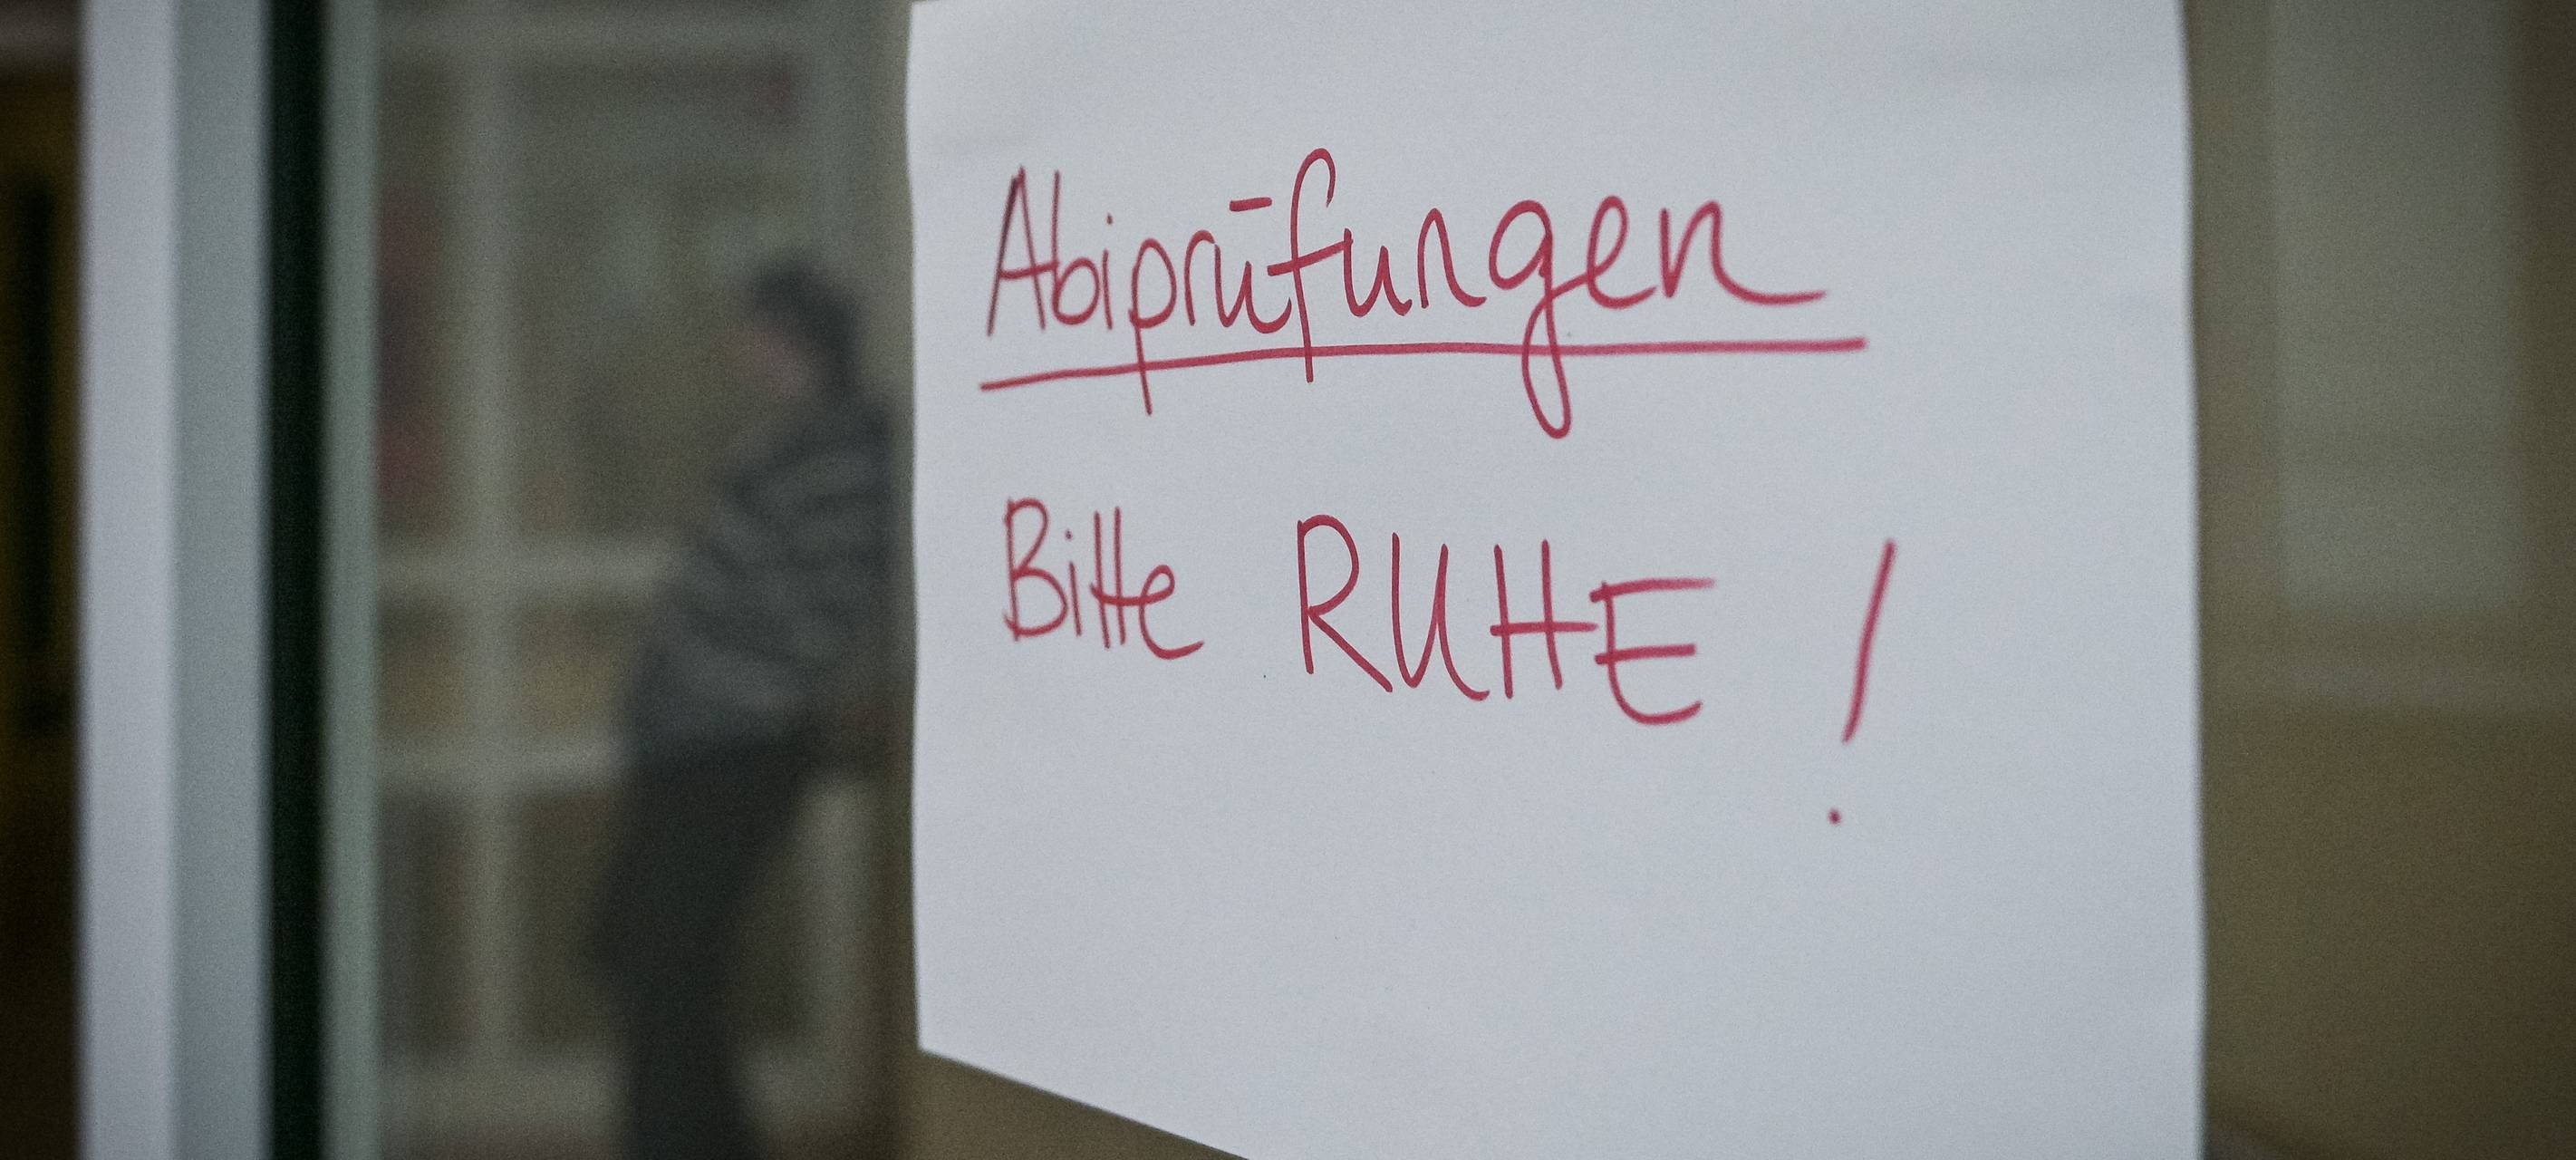 Abiprüfungen
Bitte RUHE!